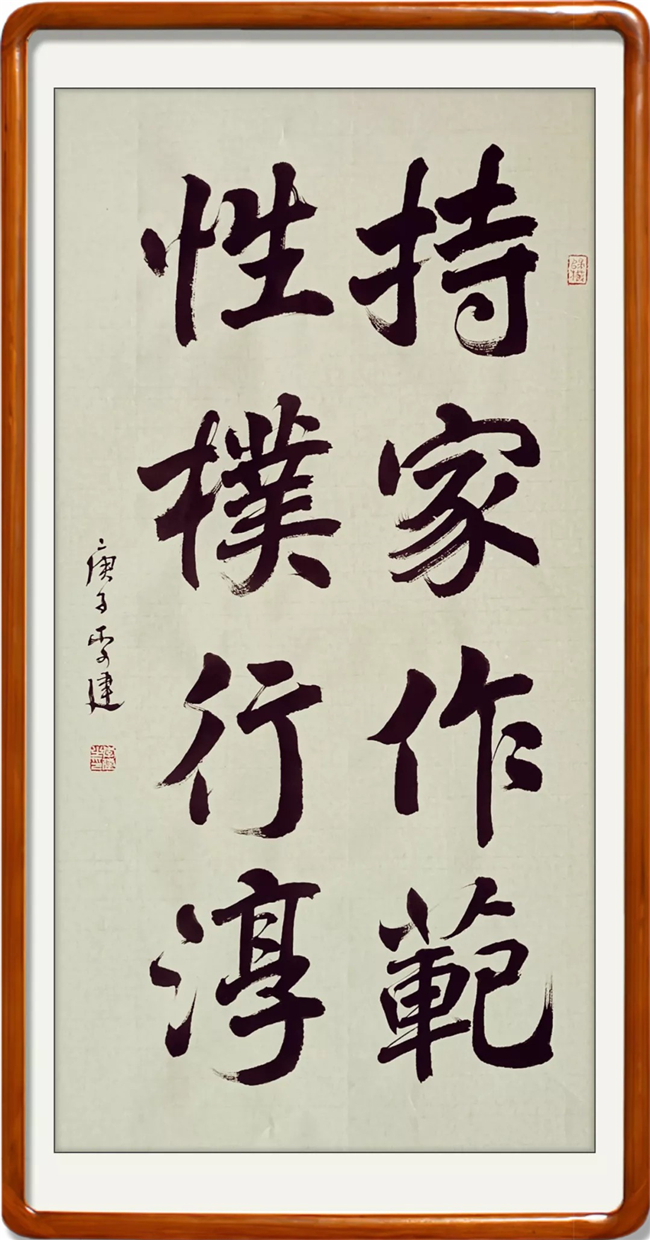 持家作範
性樸行淳
庚子雲建